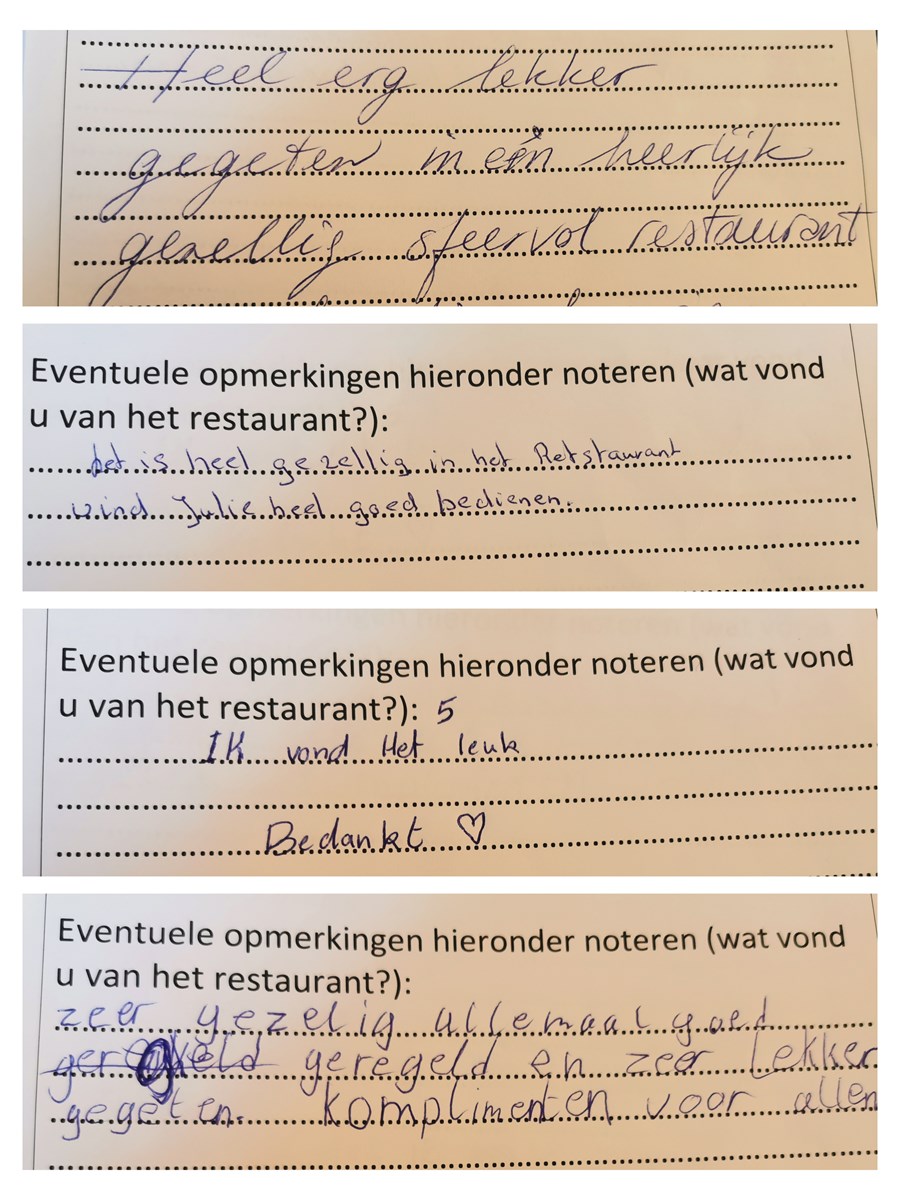 Heel erg lekker
gegeten in één heerlijk
gezellig sfeervol restaurant
Eventuele opmerkingen hieronder noteren (wat vond
u van het restaurant?):
het is heel gezellig in het Retstaurant
vind Julie heel goed bedienen.
Eventuele opmerkingen hieronder noteren (wat vond
u van het restaurant?): 5
IK vond Het leuk
Bedankt ♡
Eventuele opmerkingen hieronder noteren (wat vond
u van het restaurant?):
zeer gezelig allemaal goed
geregeld en zeer lekker
gegeten. Komplimenten voor allen